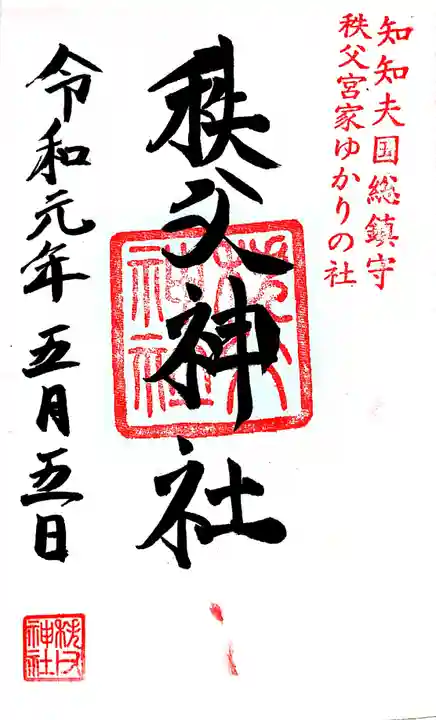 知知夫国総鎮守
秩父宮家ゆかりの社
秩父神社
秩父神社
令和元年 五月五日
秩父神社